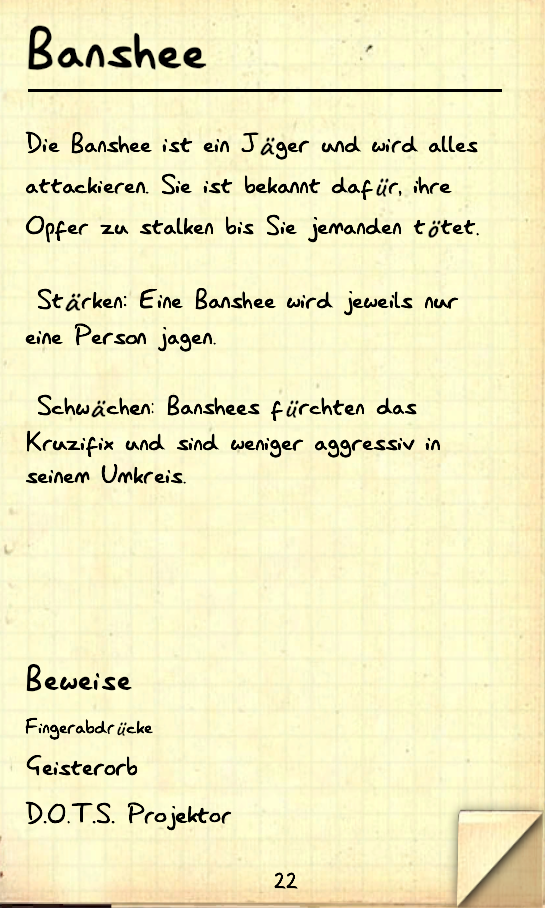 Banshee
Die Banshee ist ein Jäger und wird alles
attackieren. Sie ist bekannt dafür, ihre
Opfer zu stalken bis Sie jemanden tötet.
Stärken: Eine Banshee wird jeweils nur
eine Person jagen.
Schwächen: Banshees fürchten das
Kruzifix und sind weniger aggressiv in
seinem Umkreis.
Beweise
Fingerabdrücke
Geisterorb
D.O.T.S. Projektor
22